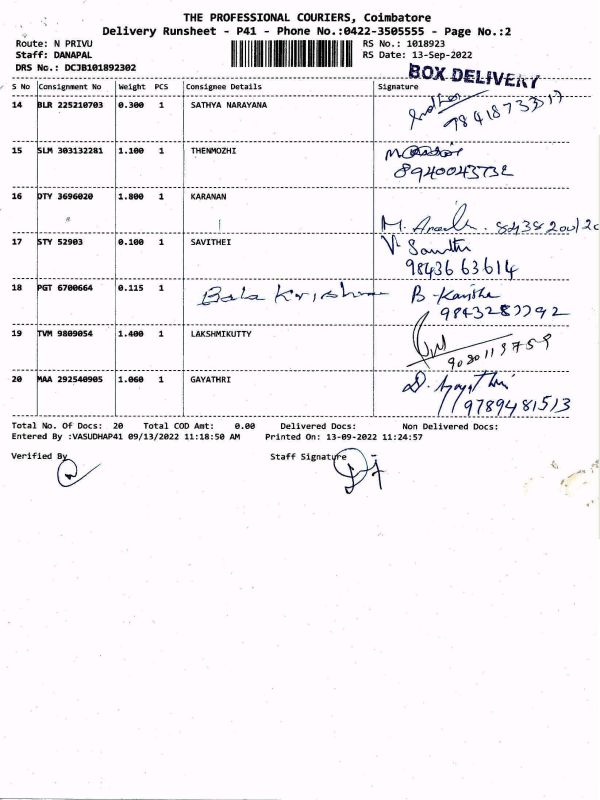 THE PROFESSIONAL COURIERS, Coimbatore
Delivery Runsheet - P41 - Phone No.:0422-3505555 - Page No.:2
Route: N PRIVU RS No.: 1018923
Staff: DANAPAL RS Date: 13-Sep-2022
DRS No.: DCJB101892302
BOX DELIVERY
S No Consignment No Weight PCS Consignee Details Signature
14 BLR 225210703 0.300 1 SATHYA NARAYANA
15 SLM 303132281 1.100 1 THENMOZHI
8940043732
16 DTY 3696020 1.800 1 KARANAN
M.
17 STY 52903 0.100 1 SAVITHEI V
9843663614
18 PGT 6700664 0.115 1 Bala Krishna B
9843287792
19 TVM 9809054 1.400 1 LAKSHMIKUTTY
20 MAA 292540905 1.060 1 GAYATHRI D.
9789481513
Total No. Of Docs: 20 Total COD Amt: 0.00 Delivered Docs: Non Delivered Docs:
Entered By :VASUDHAP41 09/13/2022 11:18:50 AM Printed On: 13-09-2022 11:24:57
Verified By Staff Signature